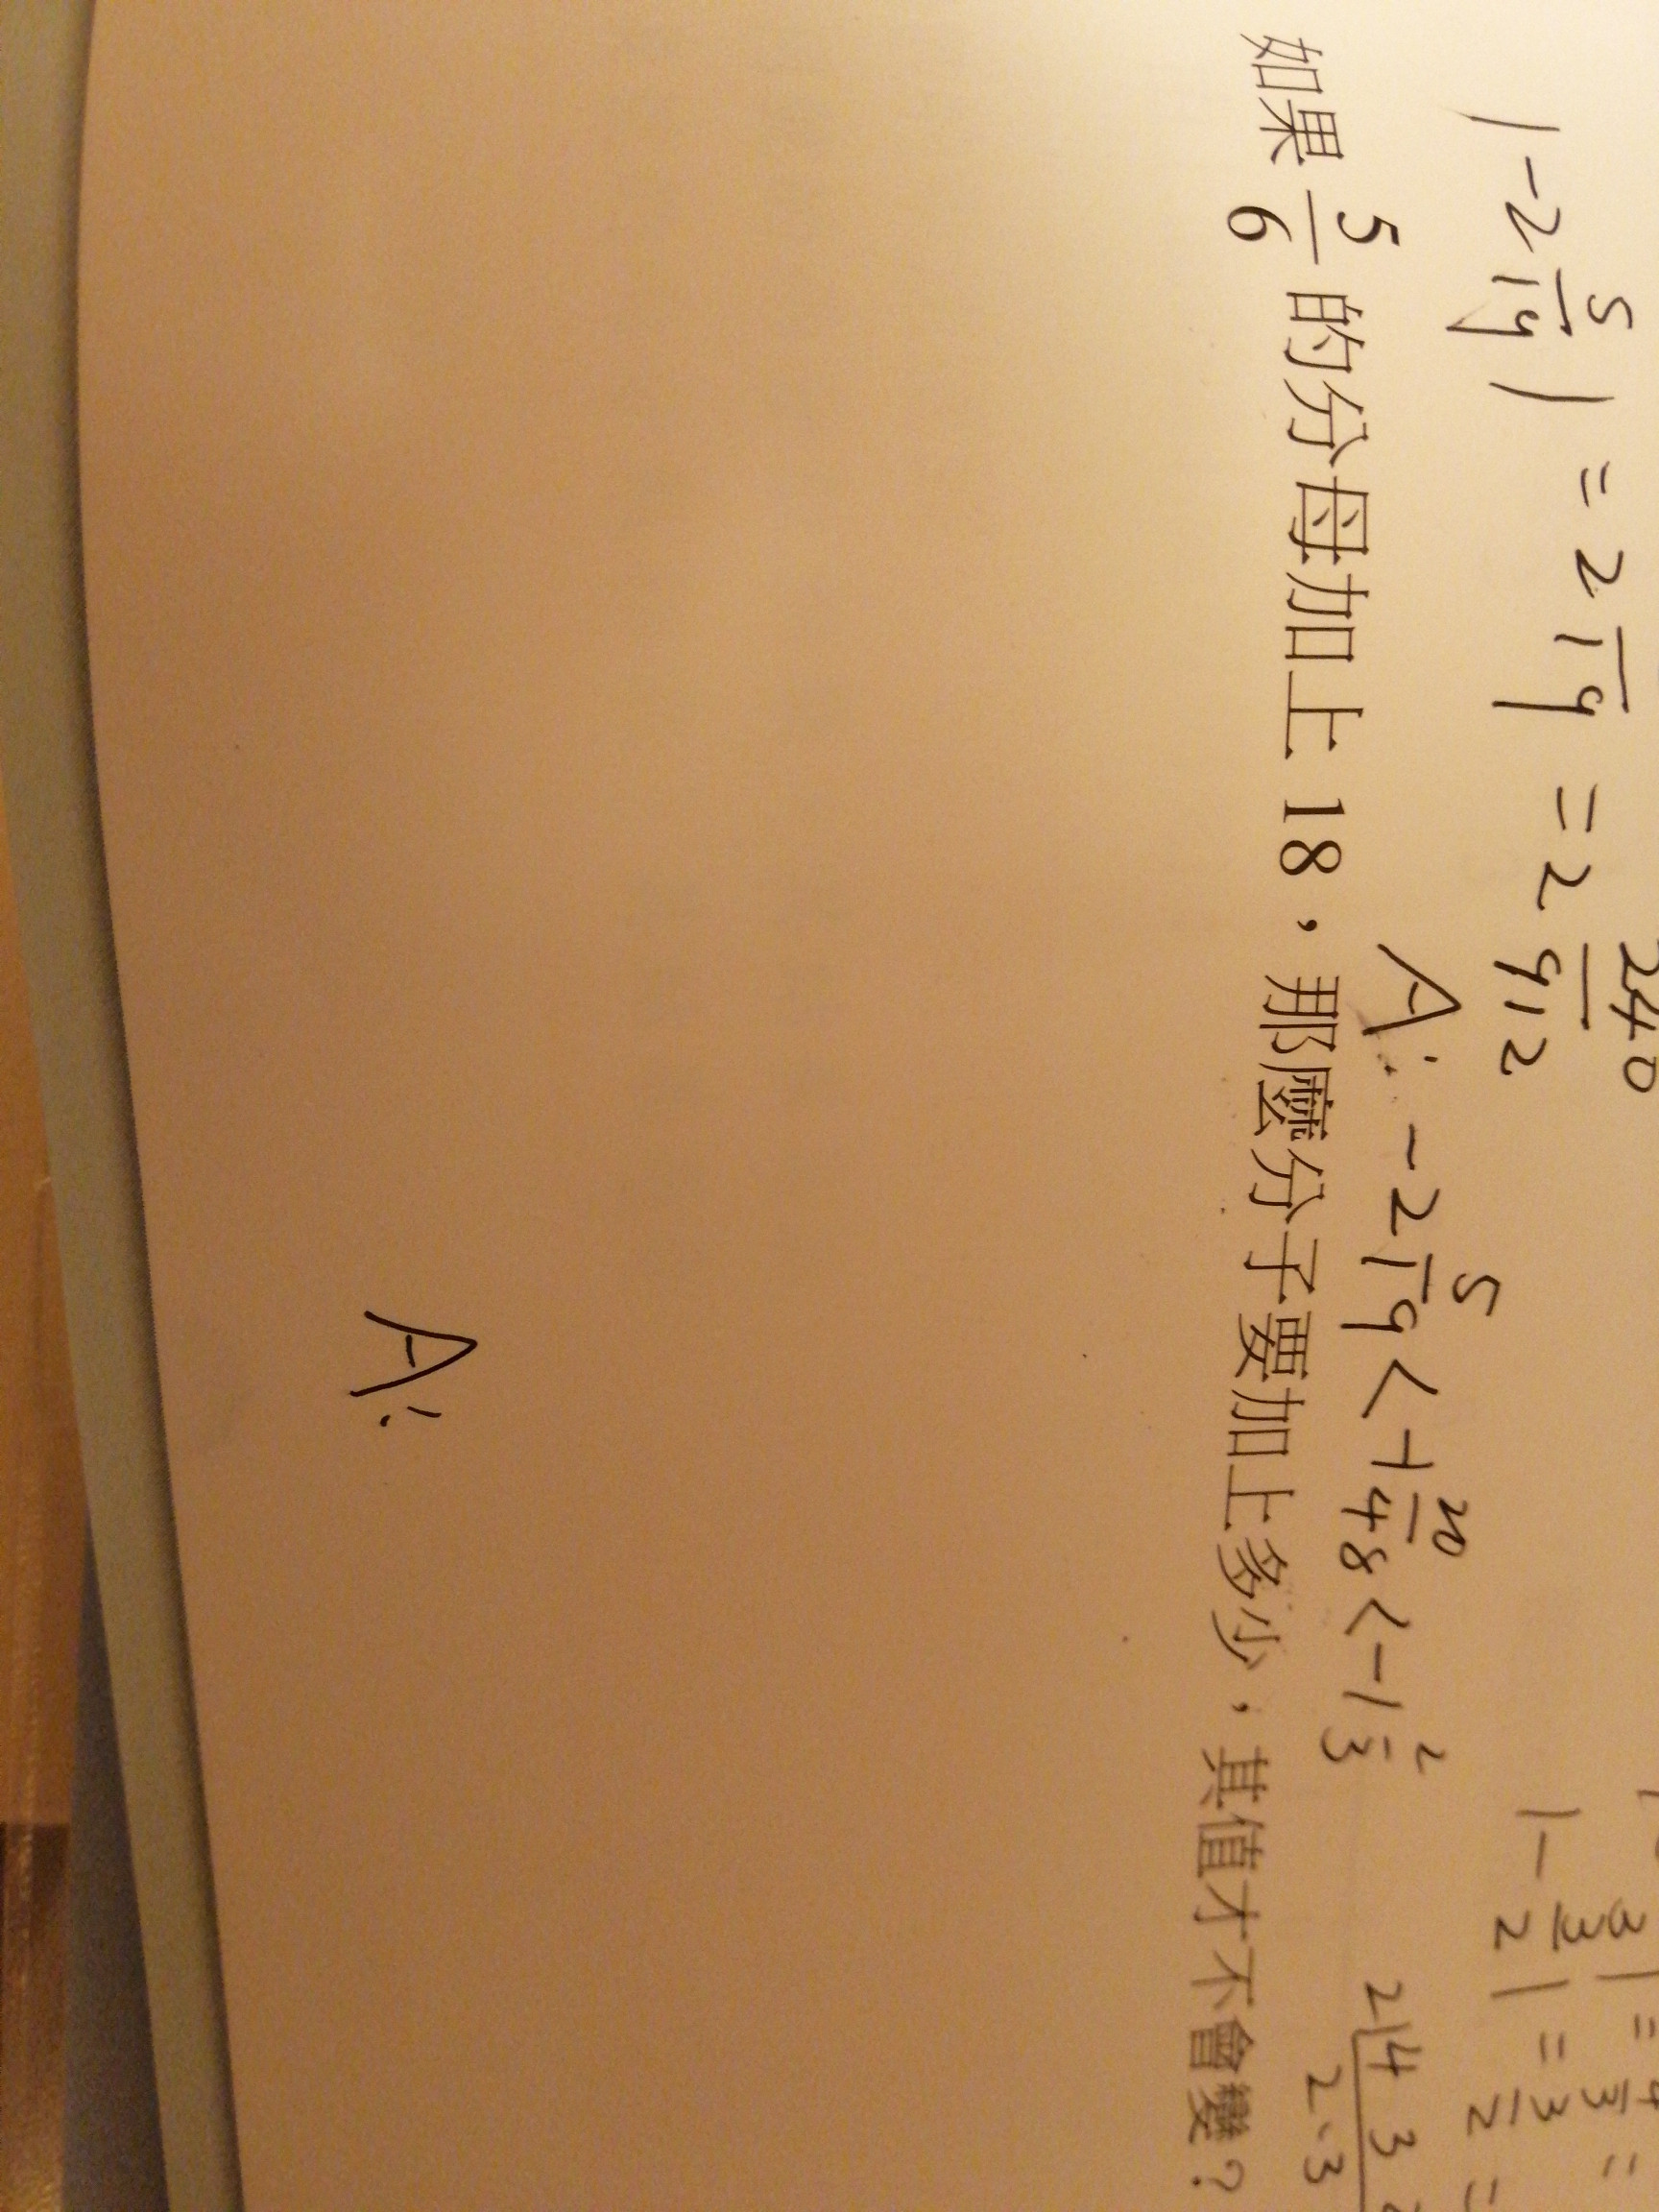 240
|-2 5/19| = 2 5/19 = 2 240/912
|-3/2| = 3/2 =
A: -2 5/19 < -1 20/48 < -1 2/3
2 | 4 3
2 · 3
如果 5/6 的分母加上 18，那麼分子要加上多少，其值才不會變？
A: